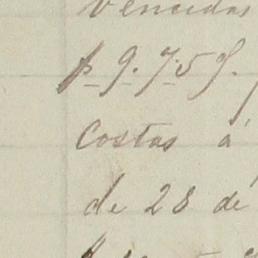 Vencidas
p. 9.759.
Costas á
de 28 de